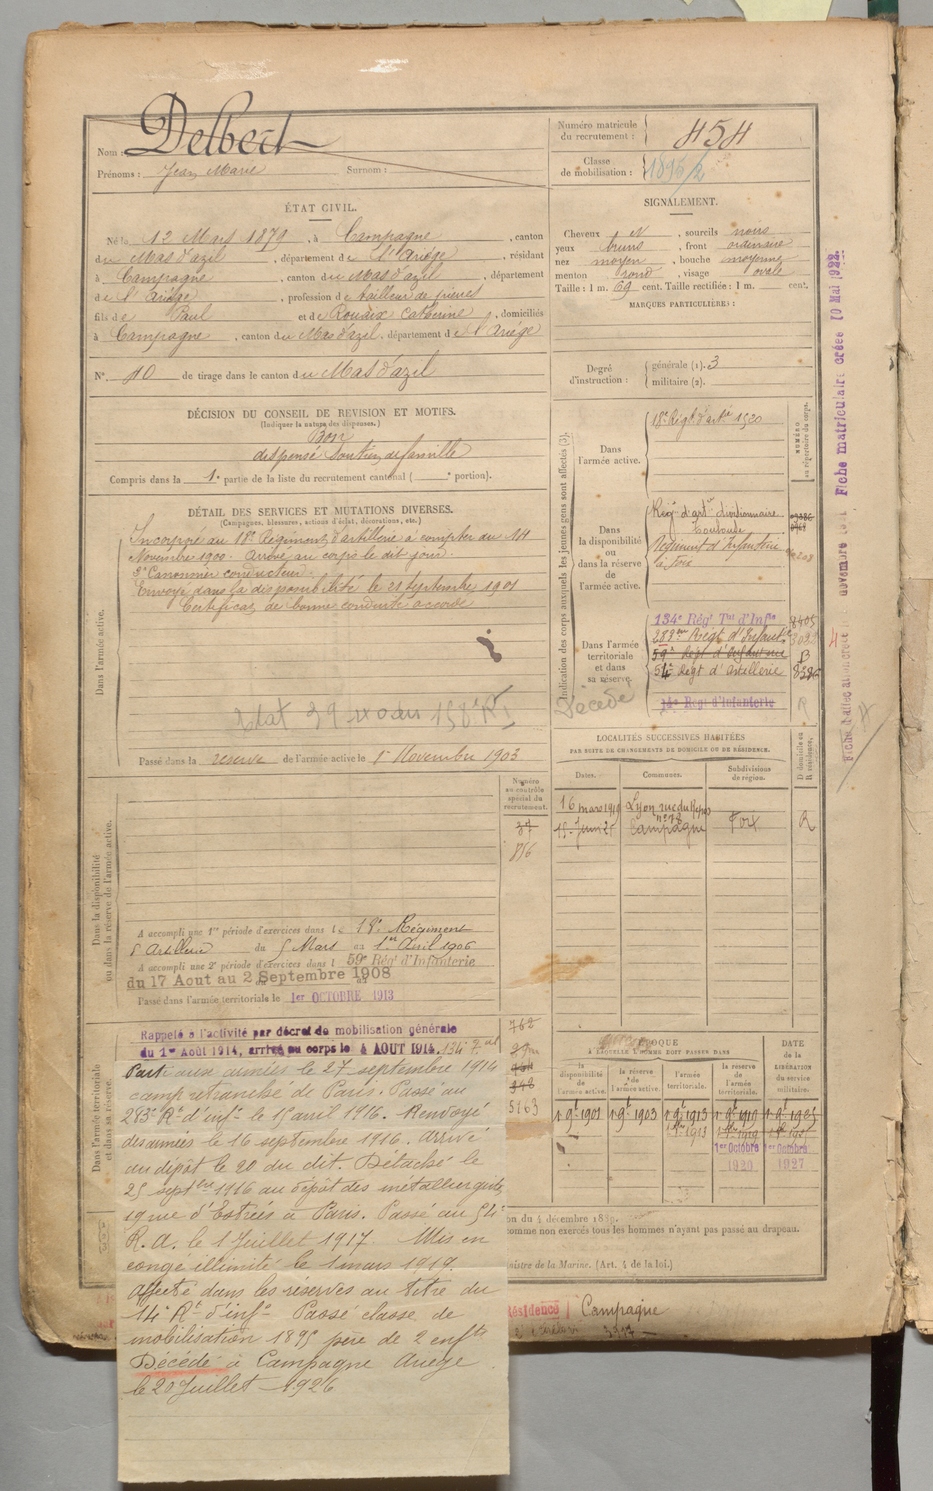 Nom : Delbert
Prénoms : Jean Marie Surnom :
Numéro matricule du recrutement : 454
Classe de mobilisation : 1895/2
ÉTAT CIVIL.
Né le 12 Mars 1879, à Campagne, canton
du Mas d'azil, département de l'Ariège, résidant
à Campagne, canton du Mas d'azil, département
de l'Ariège, profession de tailleur de pierres
fils de Paul et de Rouaix Catherine, domiciliés
à Campagne, canton du Mas d'azil, département de l'Ariège
N° 10 de tirage dans le canton du Mas d'azil
SIGNALEMENT.
Cheveux N, sourcils noirs
yeux bruns, front ordinaire
nez moyen, bouche moyenne
menton rond, visage ovale
Taille : 1 m. 69 cent. Taille rectifiée : 1 m. cent.
MARQUES PARTICULIÈRES :
Degré d'instruction : générale (1). 3
militaire (2).
DÉCISION DU CONSEIL DE REVISION ET MOTIFS.
(Indiquer la nature des dispenses.)
Bon
dispensé Soutien de famille
Compris dans la 1e partie de la liste du recrutement cantonal ( e portion).
DÉTAIL DES SERVICES ET MUTATIONS DIVERSES.
(Campagnes, blessures, actions d'éclat, décorations, etc.)
Dans l'armée active.
Incorporé au 18e Régiment d'artillerie à compter du 14
Novembre 1900. Arrivé au corps le dit jour.
2e Canonnier conducteur.
Envoyé dans la disponibilité le 21 septembre 1901
Certificat de bonne conduite accordé
Passé dans la réserve de l'armée active le 1er Novembre 1903
Indication des corps auxquels les jeunes gens sont affectés (3).
NUMÉRO au répertoire du corps.
Dans l'armée active.
18e Régt d'artie 1520
Dans la disponibilité ou dans la réserve de l'armée active.
Régt d'artie divisionnaire
Toulouse
Régiment d'Infanterie
Foix
Dans l'armée territoriale et dans sa réserve.
134e Régt Tal d'Infie
283ème Régt d'Infanterie
59e Régt d'Infanterie
54e Régt d'Artillerie
14e Régt d'Infanterie
Décédé
LOCALITÉS SUCCESSIVES HABITÉES
PAR SUITE DE CHANGEMENTS DE DOMICILE OU DE RÉSIDENCE.
Dates. Communes. Subdivisions de région. D domicile ou R résidence.
16 mars 1919 Lyon rue du Repos n° 78
15 Juin 25 Campagne Foix R
Dans la disponibilité ou dans la réserve de l'armée active.
Numéro au contrôle spécial du recrutement.
37
816
A accompli une 1re période d'exercices dans le 18e Régiment
d'Artillerie du 5 Mars au 1er Avril 1906
A accompli une 2e période d'exercices dans l 59e Régt d'Infanterie
du 17 Aout au 2 Septembre 1908
Passé dans l'armée territoriale le 1er OCTOBRE 1913
Dans l'armée territoriale et dans sa réserve.
Rappelé à l'activité par décret de mobilisation générale
du 1er Août 1914, arrivé au corps le 4 AOUT 1914. 134e Tal
Parti aux armées le 27 septembre 1914
camp retranché de Paris. Passé au
283e Rt d'infie le 15 avril 1916. Renvoyé
des armées le 16 septembre 1916. Arrivé
au dépôt le 20 du dit. Détaché le
25 septbre 1916 au dépôt des métallurgistes
19 rue d'Estrées à Paris. Passé au 54e
R. A. le 1 Juillet 1917 Mis en
congé illimité le 1 mars 1919.
Affecté dans les réserves au titre du
14e Rt d'infie Passé classe de
mobilisation 1895 père de 2 enfts
Décédé à Campagne Ariège
le 20 Juillet 1926
762
5163
ÉPOQUE
À LAQUELLE L'HOMME DOIT PASSER DANS
la disponibilité de l'armée active. la réserve de l'armée active. l'armée territoriale. la réserve de l'armée territoriale. DATE de la LIBÉRATION du service militaire.
1 9bre 1901 1 9bre 1903 1 9bre 1913 1 9bre 1919 1 9bre 1925
1er Octobre 1920 1er Octobre 1927
on du 4 décembre 1889.
omme non exercés tous les hommes n'ayant pas passé au drapeau.
nistre de la Marine. (Art. 4 de la loi.)
Résidence Campagne
Fiche matriculaire créée 10 Mai 1922.